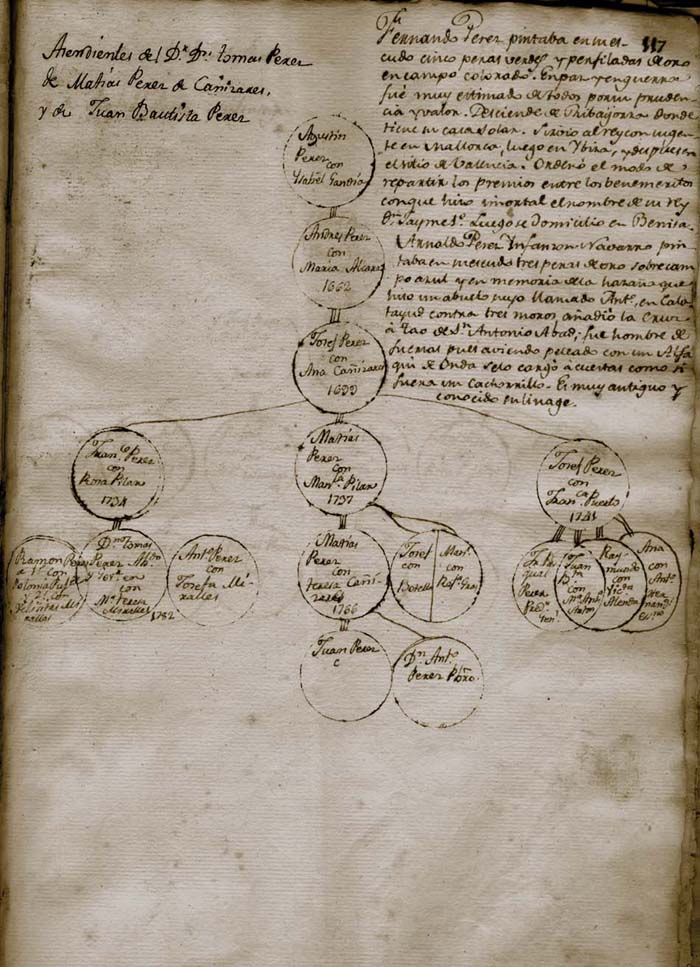 Atendientes del Dr. Dn. tomas Perez
de Matías Perez de Cañizares,
y de Juan Bautista Perez
117
Fernando Perez pintaba en su es-
cudo cinco peras verdes y perfiladas de oro
en campo colorado. En paz y en guerra
fué muy estimado de todos por su pruden-
cia y valor. Desciende de Ribagorza donde
tiene su casa solar. Sirvio al rey con su gen-
te en Mallorca, luego en Ybiza, y despues en
el sitio de Valencia. Ordenó el modo de
repartir los premios entre los benemeritos
con que hizo inmortal el nombre de su rey
Dn. Jayme 1º. Luego se Domicilio en Benisa.
Arnaldo Perez Infanzon Navarro pin-
taba en su escudo tres peras de oro sobre cam-
po azul y en memoria de la hazaña que
hizo un abuelo suyo llamado Antº. en Cala-
tayud contra tres moros, añadio la Cruz
ó Tao de Sn. Antonio Abad, fue hombre de
fuerzas pues aviendo peleado con un Alfa-
qui de Onda se lo cargó à cuestas como si
fuera un Cachorrillo. Es muy antiguo y
conocido su linage.
Agustin
Perez
con
Ysabel Gandia
Andres Perez
con
Maria Alvarez
1662
Josef Perez
con
Ana Cañizares
1699
Franco. Perez
con
Rosa Pilar
1734
Matías
Perez
con
Manla. Pilar
1737
Josef Perez
con
Franca. Puerto
1741
Ramon Perez
a 1º. con
Polonia
y 2º. con
Mi-
ralles
Dn. tomas
Perez
con
Mª. teresa
Miralles
1782
Antº. Perez
con
Josefa Mi-
ralles
Matías
Perez
con
teresa Cañi-
zares
1766
Josef
con
Botella
Man.
con
Pasqual
Perez
Juan
Bta.
con
Mª. Anta.
Ray-
mundo
con
Victa.
Ana
con
Antº.
Her-
nandez
Juan Perez
c
Dn. Antº.
Perez Pbro.